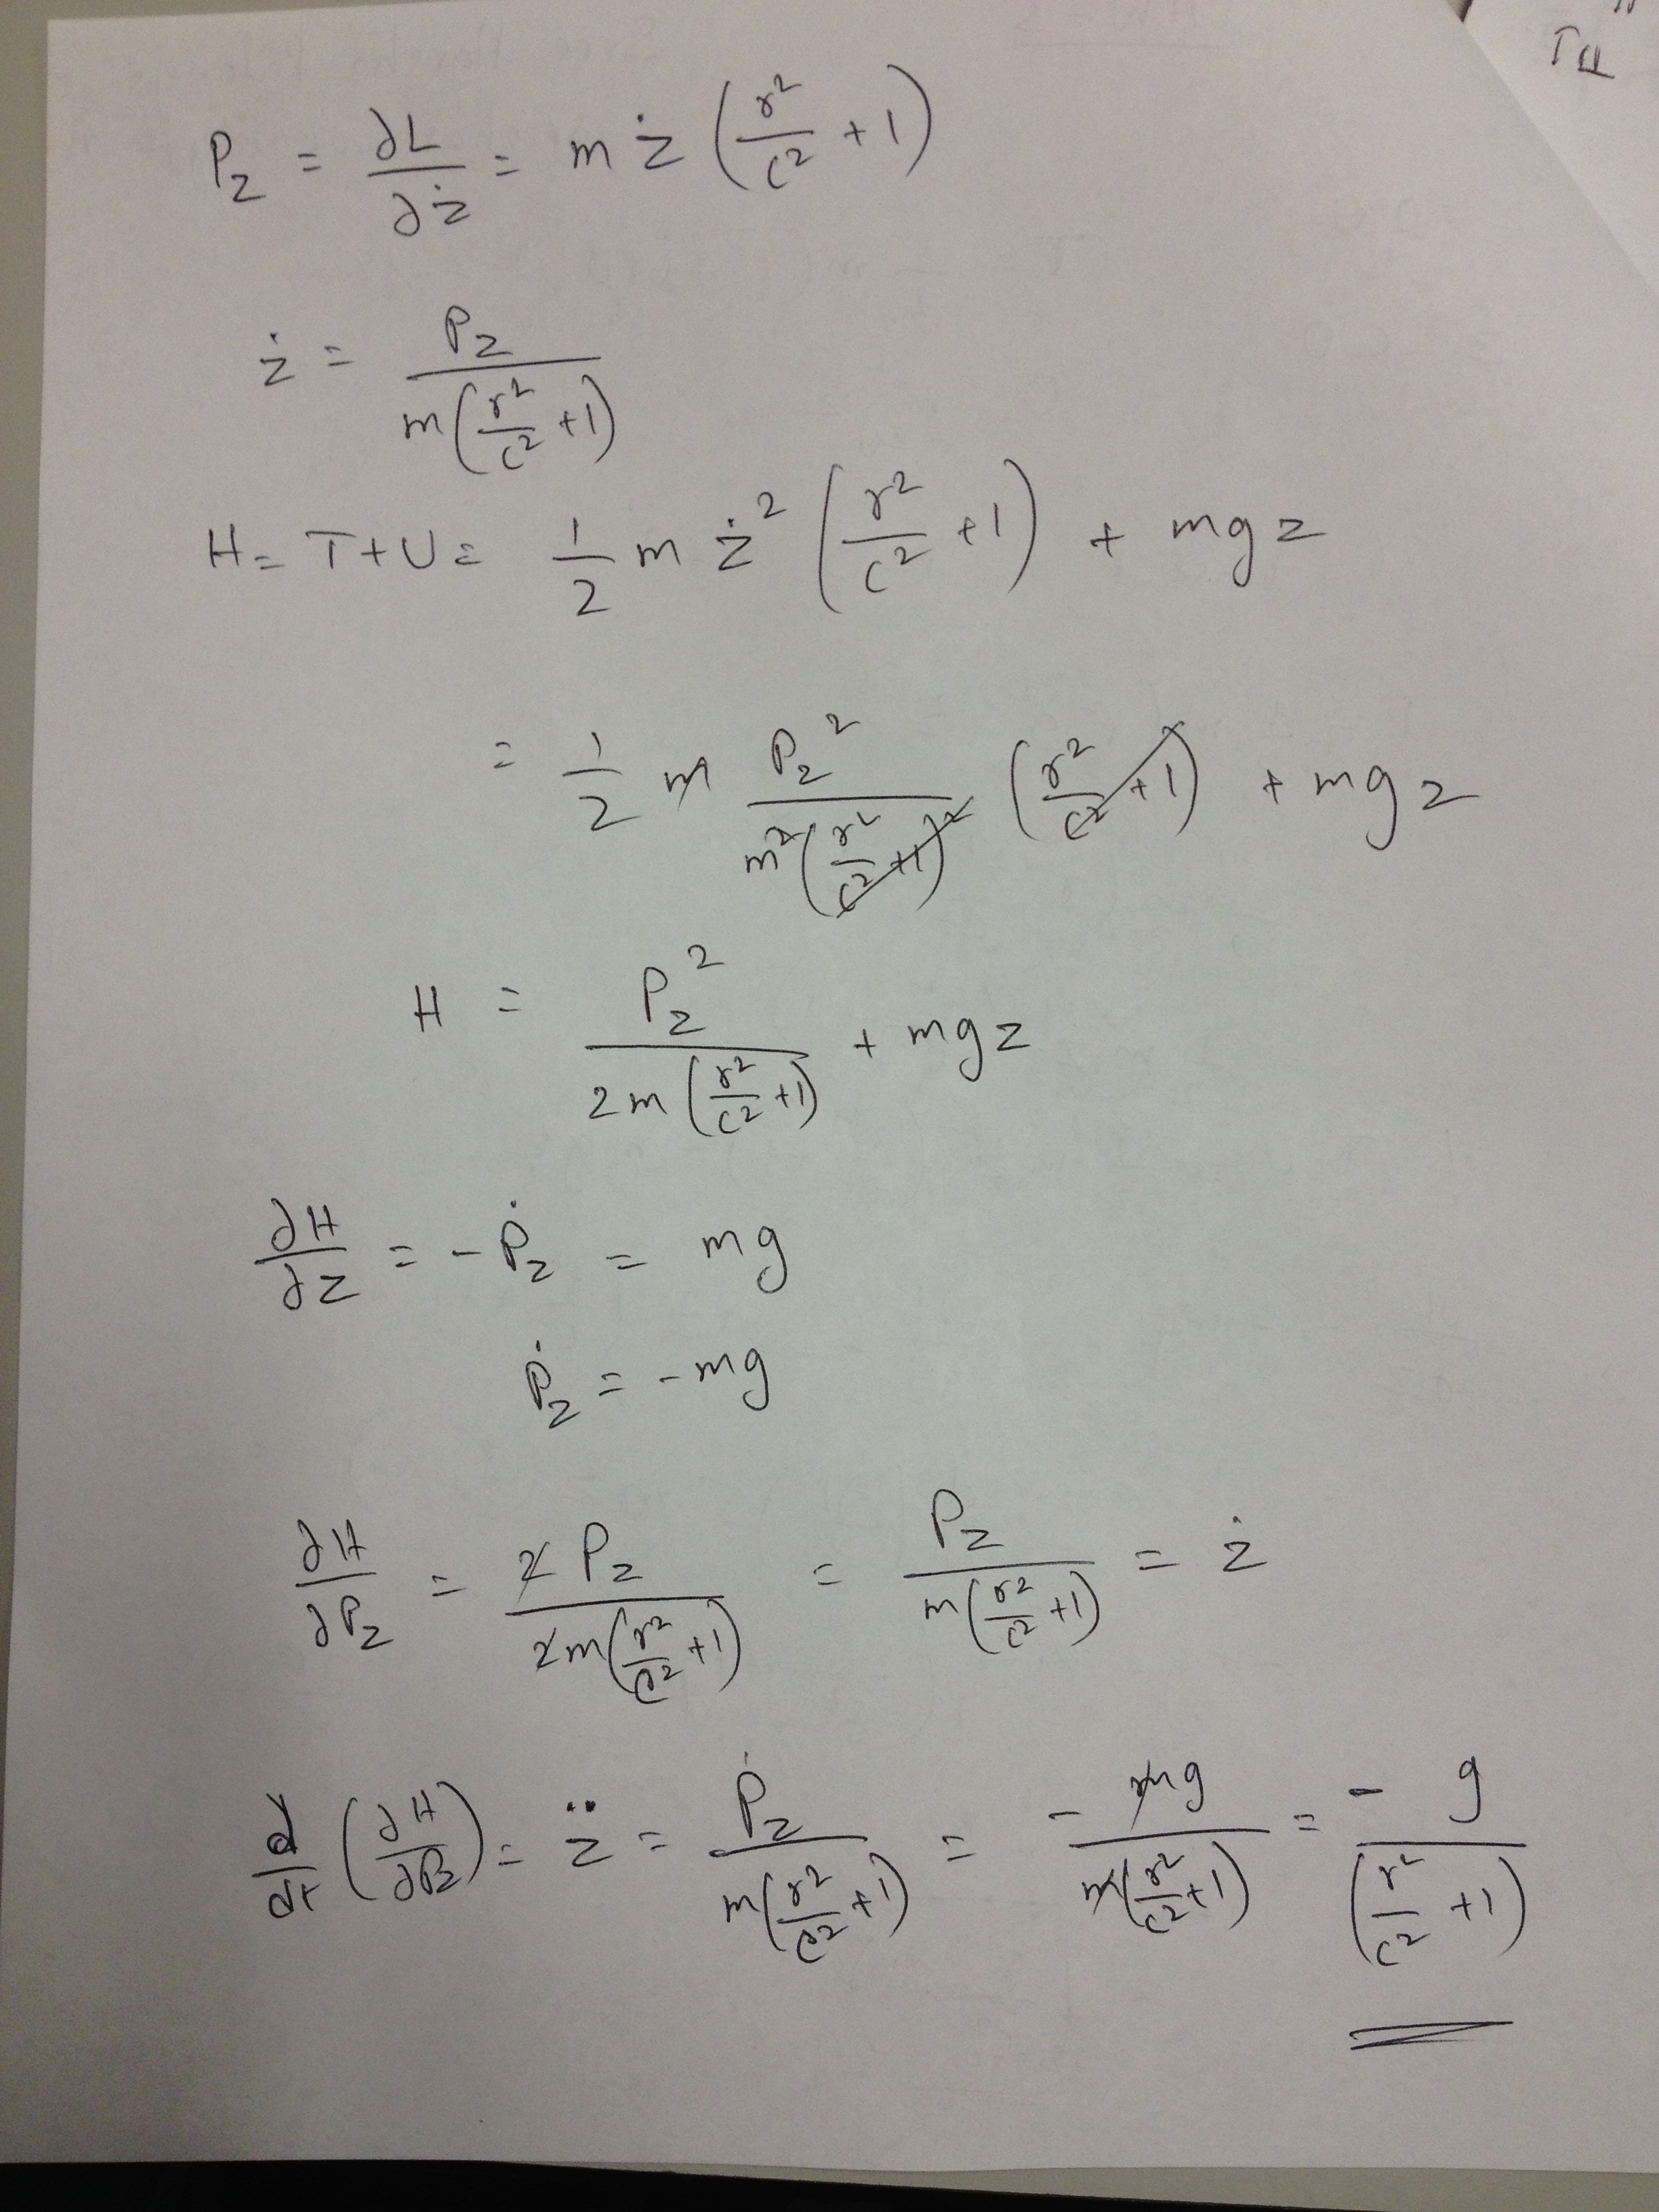 P_z = ∂L/∂ż = m ż (r²/c² + 1)
ż = P_z / m(r²/c² + 1)
H = T + U = 1/2 m ż² (r²/c² + 1) + mgz
= 1/2 m P_z² / m²(r²/c² + 1)² (r²/c² + 1) + mgz
H = P_z² / 2m(r²/c² + 1) + mgz
∂H/∂z = -Ṗ_z = mg
Ṗ_z = -mg
∂H/∂P_z = 2P_z / 2m(r²/c² + 1) = P_z / m(r²/c² + 1) = ż
d/dt (∂H/∂P_z) = z̈ = Ṗ_z / m(r²/c² + 1) = -mg / m(r²/c² + 1) = -g / (r²/c² + 1)